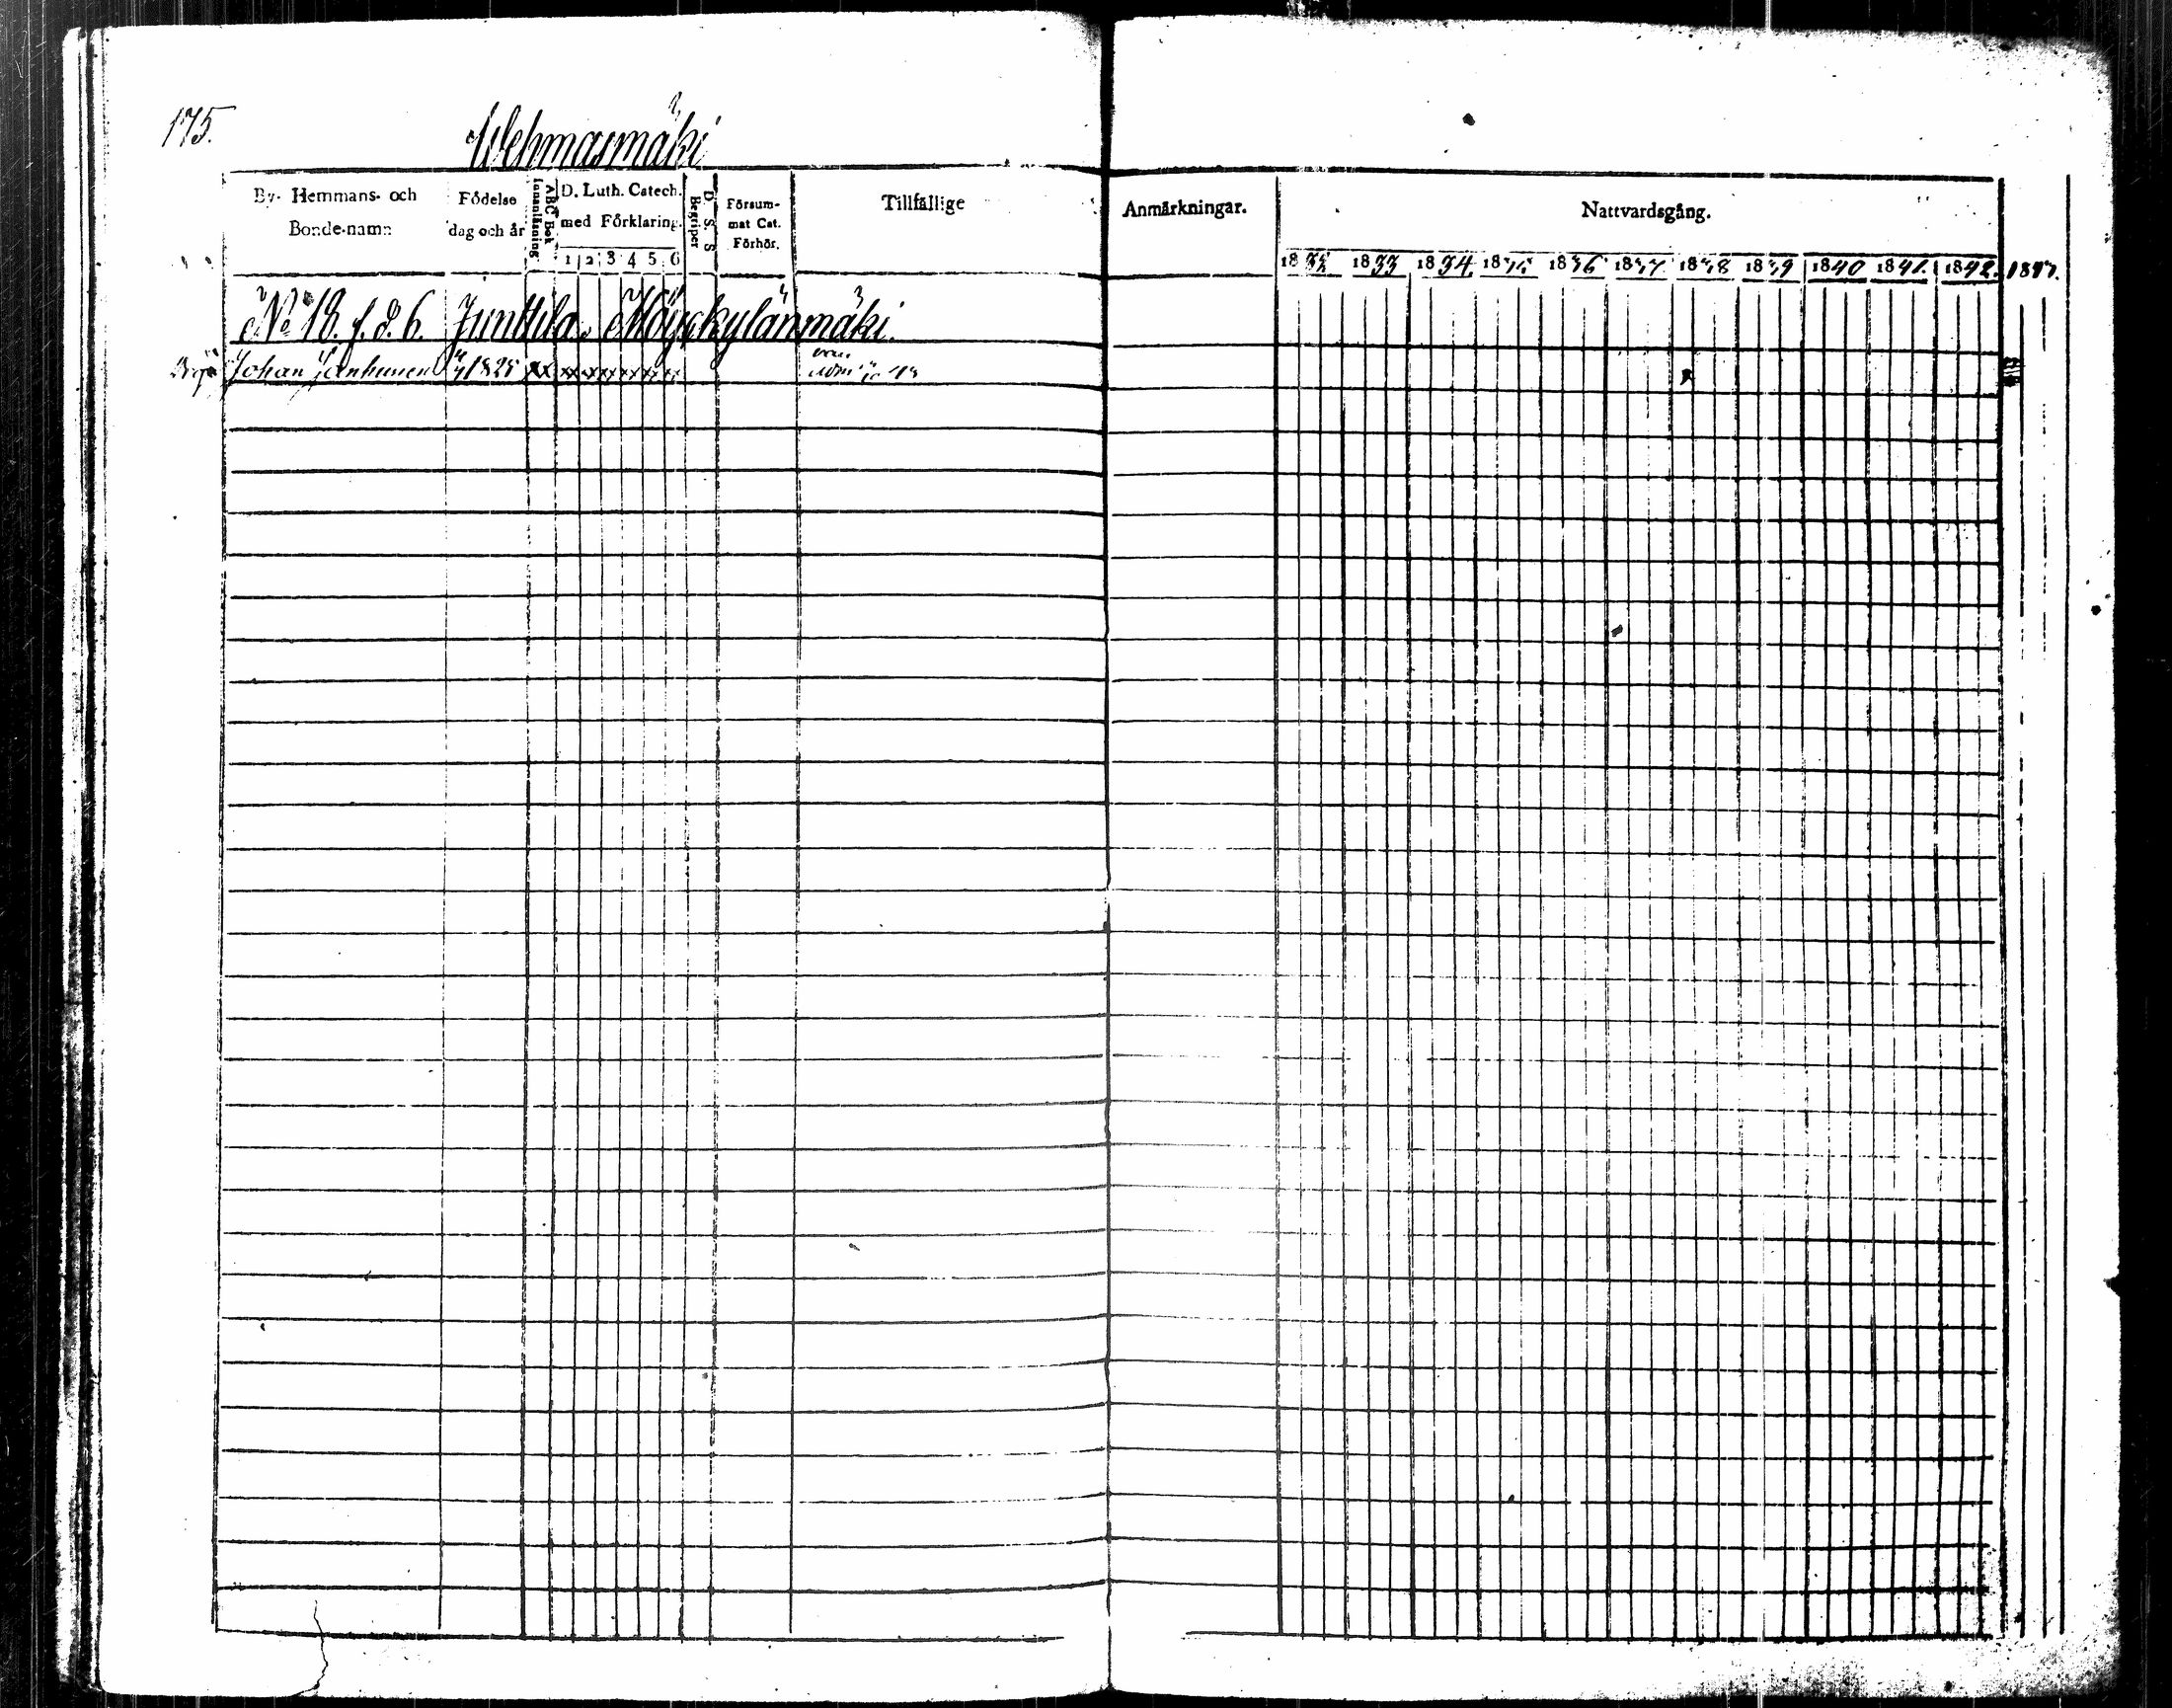 175.
Wehmasmäki
By- Hemmans- och Bonde-namn
Födelse dag och år
ABC Bok Innanläsning
D. Luth. Catech. med Förklaring.
1 2 3 4 5 6
D. S. S. Begriper
Försum-mat Cat. Förhör.
Tillfällige
Anmärkningar.
Nattvardsgång.
1832 1833 1834 1835 1836 1837 1838 1839 1840 1841. 1842. 1843.
No 18. f. d. 6. Junttila
Johan Janhunen 1825 xx xx xx xx xx xx xx